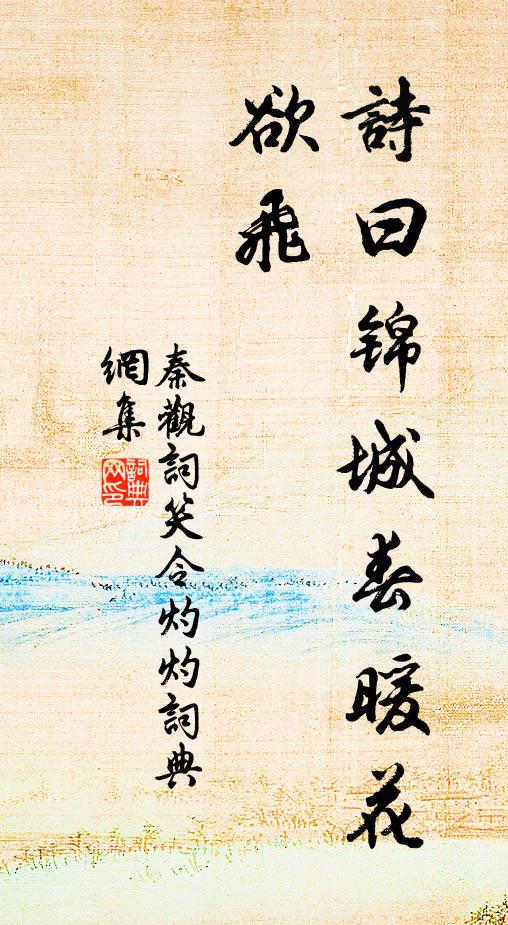 詩曰锦城春暖花
欲飛
秦觀詞笑令灼灼詞典
網集
詞典
网印